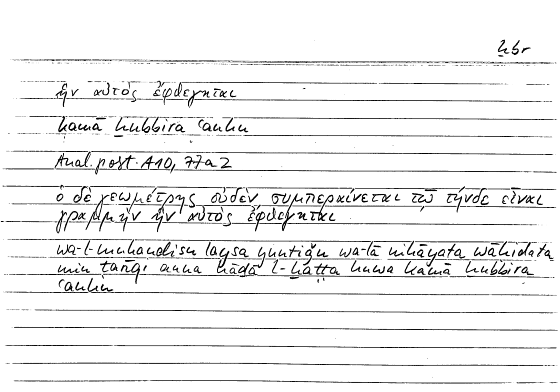 ḫbr
ἣν αὐτὸς ἔφθεγκται
kamā ḫubbira ʿanhu
Anal. post. A 10, 77a2
ὁ δὲ γεωμέτρης οὐδὲν συμπεραίνεται τῷ τήνδε εἶναι
γραμμὴν ἣν αὐτὸς ἔφθεγκται
wa-l-muhandisu laysa yuntiǧu wa-lā nihāyata wāḥidata
min anna hāḏā l-ḫaṭṭa huwa kamā ḫubbira
ʿanhu